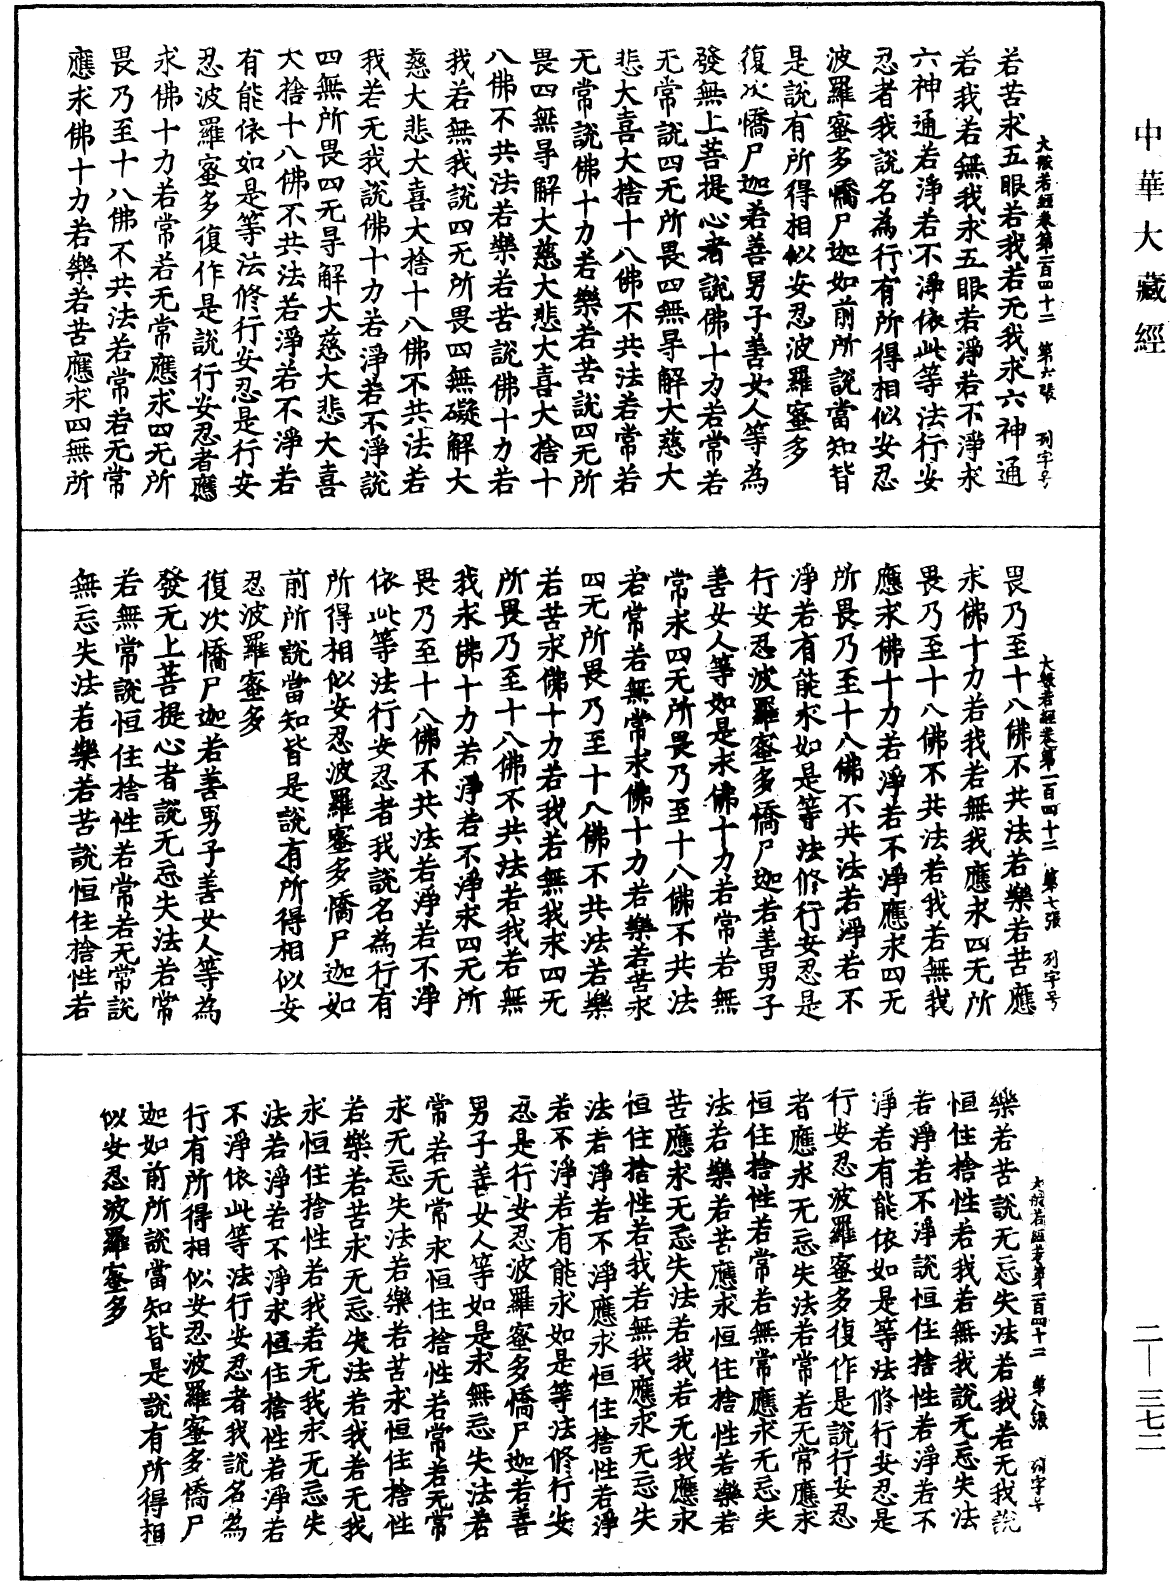 中華大藏經
若苦求五眼若我若无我求六神通
若我若無我求五眼若淨若不淨求
六神通若淨若不淨依此等法行安
忍者我說名為行有所得相似安忍
波羅蜜多憍尸迦如前所說當知皆
是說有所得相似安忍波羅蜜多
復次憍尸迦若善男子善女人等為
發無上菩提心者說佛十力若常若
无常說四无所畏四無㝵解大慈大
悲大喜大捨十八佛不共法若常若
无常說佛十力若樂若苦說四无所
畏四無㝵解大慈大悲大喜大捨十
八佛不共法若樂若苦說佛十力若
我若無我說四无所畏四無礙解大
慈大悲大喜大捨十八佛不共法若
我若无我說佛十力若淨若不淨說
四無所畏四无㝵解大慈大悲大喜
大捨十八佛不共法若淨若不淨若
有能依如是等法修行安忍是行安
忍波羅蜜多復作是說行安忍者應
求佛十力若常若无常應求四无所
畏乃至十八佛不共法若常若无常
應求佛十力若樂若苦應求四無所
大般若經卷第一百四十二 第六張 列字号
畏乃至十八佛不共法若樂若苦應
求佛十力若我若無我應求四无所
畏乃至十八佛不共法若我若無我
應求佛十力若淨若不淨應求四无
所畏乃至十八佛不共法若淨若不
淨若有能求如是等法修行安忍是
行安忍波羅蜜多憍尸迦若善男子
善女人等如是求佛十力若常若無
常求四无所畏乃至十八佛不共法
若常若無常求佛十力若樂若苦求
四无所畏乃至十八佛不共法若樂
若苦求佛十力若我若無我求四无
所畏乃至十八佛不共法若我若無
我求佛十力若淨若不淨求四无所
畏乃至十八佛不共法若淨若不淨
依此等法行安忍者我說名為行有
所得相似安忍波羅蜜多憍尸迦如
前所說當知皆是說有所得相似安
忍波羅蜜多
復次憍尸迦若善男子善女人等為
發无上菩提心者說无忘失法若常
若無常說恒住捨性若常若无常說
無忘失法若樂若苦說恒住捨性若
大般若經卷第一百四十二 第七張 列字号
樂若苦說无忘失法若我若无我說
恒住捨性若我若無我說无忘失法
若淨若不淨說恒住捨性若淨若不
淨若有能依如是等法修行安忍是
行安忍波羅蜜多復作是說行安忍
者應求无忘失法若常若无常應求
恒住捨性若常若無常應求无忘失
法若樂若苦應求恒住捨性若樂若
苦應求无忘失法若我若无我應求
恒住捨性若我若無我應求无忘失
法若淨若不淨應求恒住捨性若淨
若不淨若有能求如是等法修行安
忍是行安忍波羅蜜多憍尸迦若善
男子善女人等如是求無忘失法若
常若无常求恒住捨性若常若无常
求无忘失法若樂若苦求恒住捨性
若樂若苦求无忘失法若我若无我
求恒住捨性若我若无我求无忘失
法若淨若不淨求恒住捨性若淨若
不淨依此等法行安忍者我說名為
行有所得相似安忍波羅蜜多憍尸
迦如前所說當知皆是說有所得相
似安忍波羅蜜多
大般若經卷第一百四十二 第八張 列字号
二—三七二